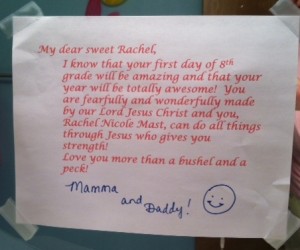 My dear sweet Rachel,
I know that your first day of 8th
grade will be amazing and that your
year will be totally awesome! You
are fearfully and wonderfully made
by our Lord Jesus Christ and you,
Rachel Nicole Mast, can do all things
through Jesus who gives you
strength!
Love you more than a bushel and a
peck!
Mamma
and
Daddy!